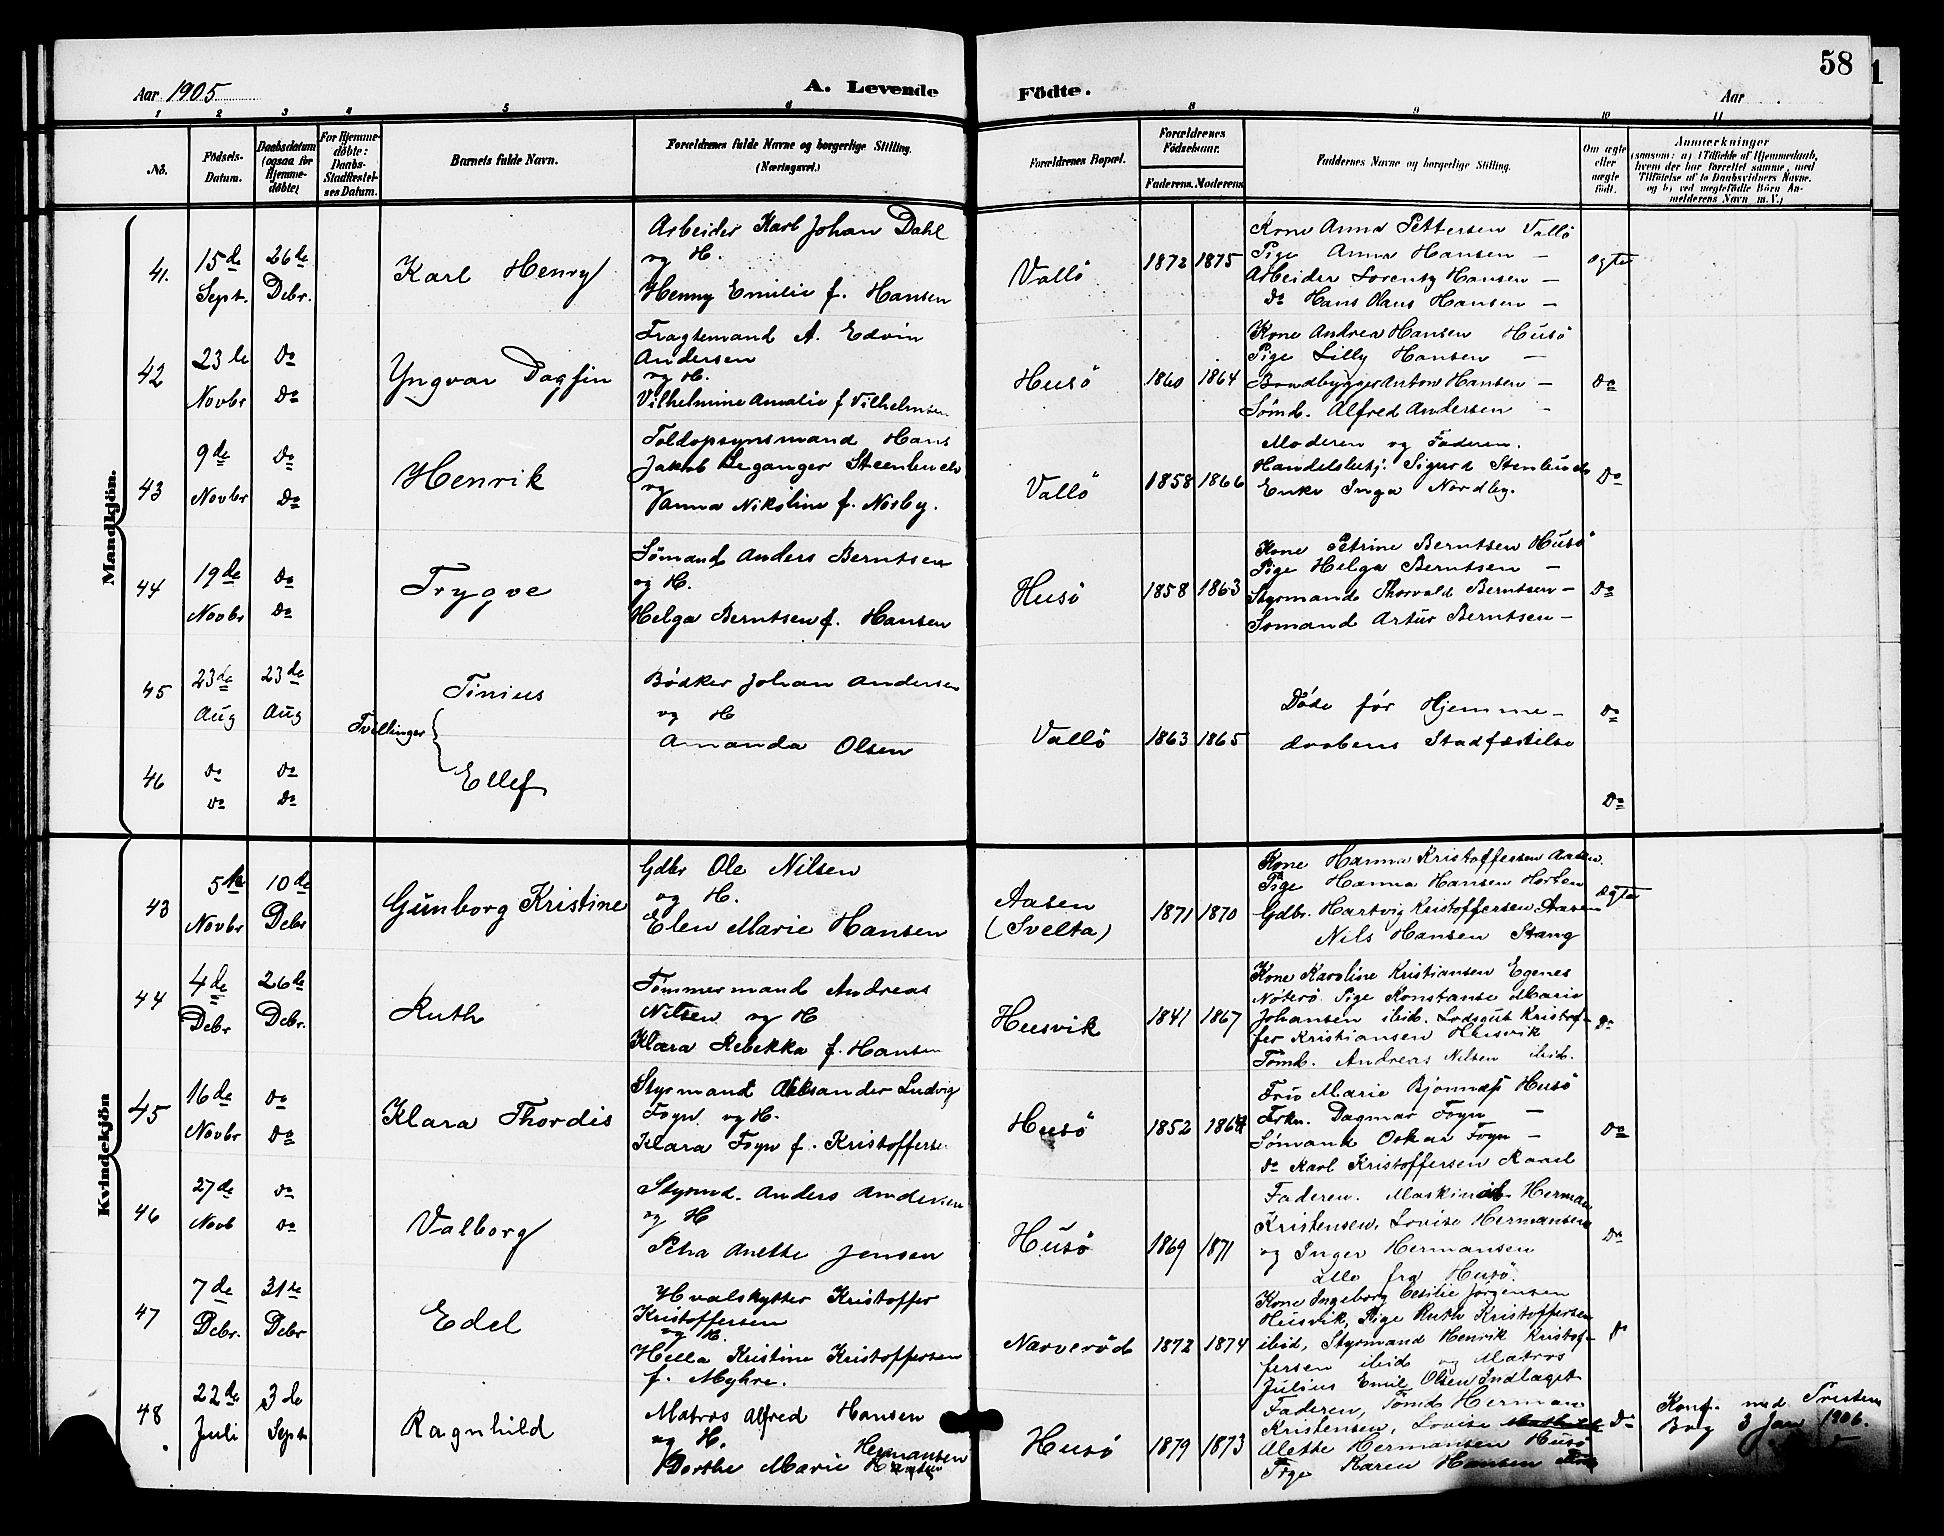 58
Aar 1905
A. Levende
Födte.
Aar
1 2 3 4 5 6 8 9 10 11
No.
Födsels-
Datum.
Daabsdatum
(ogsaa for
Hjemme-
döbte)
For Hjemme-
döbte:
Daabs-
Stadfæstel-
ses Datum.
Barnets fulde Navn.
Forældrenes fulde Navne og borgerlige Stilling.
(Næringsvei.)
Forældrenes Bopæl.
Forældrenes
Födselsaar.
Faderens. Moderens
Faddernes Navne og borgerlige Stilling.
Om ægte
eller
uægte
födt.
Anmærkninger
(saasom: a) i Tilfælde af Hjemmedaab,
hvem der har forrettet samme, med
Tilföielse af to Daabsvidners Navne.
og b) ved uægtefödte Börn An-
melderens Navn m. V.)
Mandkjön.
41. 15de Sept. 26de Debr. Karl Henry
Arbeider Karl Johan Dahl
og H.
Henny Emilie f. Hansen
Vallö 1872 1875
Kone Anna Pettersen Vallö
Pige Anna Hansen —
Arbeider Lorentz Hansen —
Do Hans Olaus Hansen —
ægte
42 23de Novbr Do Do Yngvar Dagfin
Fragtemand A. Edvin
Andersen
og H.
Vilhelmine Amalie f Vilhelmsen
Husö 1860 1864
Kone Andrea Hansen Husö
Pige Lilly Hansen —
Baadbygger Anton Hansen —
Sömd. Alfred Andersen —
Do
43 9de Novbr Do Do Henrik
Toldopsynsmand Hans
Jakob Steenbuch
og
Vanna Nikoline f. Nosby.
Vallö 1858 1866
Moderen og Faderen.
Handelsbetj. Sigurd Stenbuch
Enke Inga Nordby.
Do
44 19de Novbr Do Do Trygve
Sömand Anders Berntsen
og H.
Helga Berntsen f. Hansen
Husö 1858 1863
Kone Petrine Berntsen Husö
Pige Helga Berntsen —
Styrmand Thorvald Berntsen —
Sömand Artur Berntsen —
Do
45 23de Aug 23de Aug Tinius
Tvillinger
Bödker Johan Andersen
og H
Amanda Olsen
Vallö 1863 1865
Döde för Hjemme-
daabens Stadfæstelse
Do
46 do do Do Do Ellef
Do
Kvindekjön
43 5te Novbr 10de Debr Gunborg Kristine
Gdbr Ole Nilsen
og H.
Elen Marie Hansen
Aasen
(Svelta) 1871 1870
Kone Hanna Kristoffersen Aasen.
Pige Hanna Hansen Horten
Gdbr. Hartvig Kristoffersen Aasen
Nils Hansen Stang
ægte
44 4de Debr 26de Debr. Ruth
Tömmermand Andreas
Nilsen og H
Klara Rebekka f. Hansen
Husvik 1841 1867
Kone Karoline Kristiansen Egenes
Nöterö. Pige Konstanse Marie
Johansen ibid. Lodsgut Kristof-
fer Kristiansen Husvik
Tömd. Andreas Nilsen ibid.
Do
45 16de Novbr Do Do Klara Thordis
Styrmand Aleksander Ludvig
Foyn og H.
Klara Foyn f. Kristoffersen
Husö 1852 1864
Fru Marie Bjønnæs Husö
Frkn. Dagmar Foyn —
Sömand Oskar Foyn —
Do Karl Kristoffersen Raael
Do
46 27de Novb Do Do Valborg
Styrmd. Anders Andersen
og H
Petra Anette Jensen
Husö 1869 1871
Faderen. Herman
Kristensen, Lovise Hermansen
og Inger Hermansen
alle fra Husö.
Do
47 7de Debr. 31te Debr Edel
Hvalskytter Kristoffer
Kristoffersen
og H.
Hella Kristine Kristoffersen
f. Myhre.
Narveröd 1872 1874
Kone Ingeborg Cesilie Jörgensen
Husvik, Pige Ruth Kristoffersen
ibid, Styrmand Henrik Kristof-
fersen ibid og Matros
Julius Emil Olsen Indlaget
Do
48 22de Juli 3de Septr Ragnhild
Matros Alfred Hansen
og H.
Hermansen
Dorthe Marie
Husö 1879 1873
Faderen, Tömd Herman
Kristensen, Lovise
Alette Hermansen Husö
Pige Karen Hansen
Do
Konf. med Presten
Borg 3 Jan 1906.